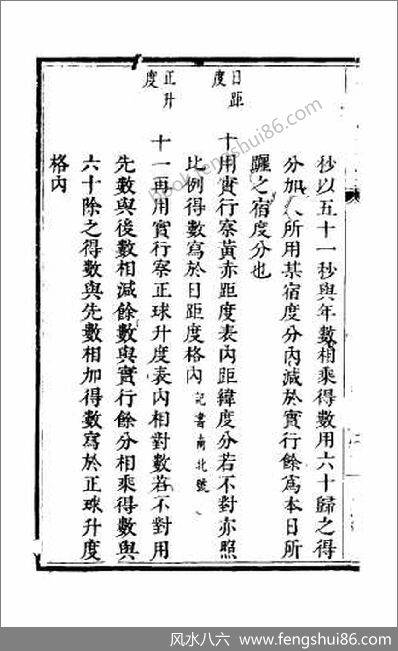 秒以五十一秒與年數相乘得數用六十歸之得
分加入所用某宿度分內減於實行餘爲本日所
躔之宿度分也
日距度
十用實行察黃赤距度表內距緯度分若不對亦照
比例得數寫於日距度格內 記書南北號
正升度
十一再用實行察正球升度表內相對數若不對用
先數與後數相減餘數與實行餘分相乘得數與
六十除之得數與先數相加得數寫於正球升度
格內
book.fengshui86.com
风水八六 www.fengshui86.com